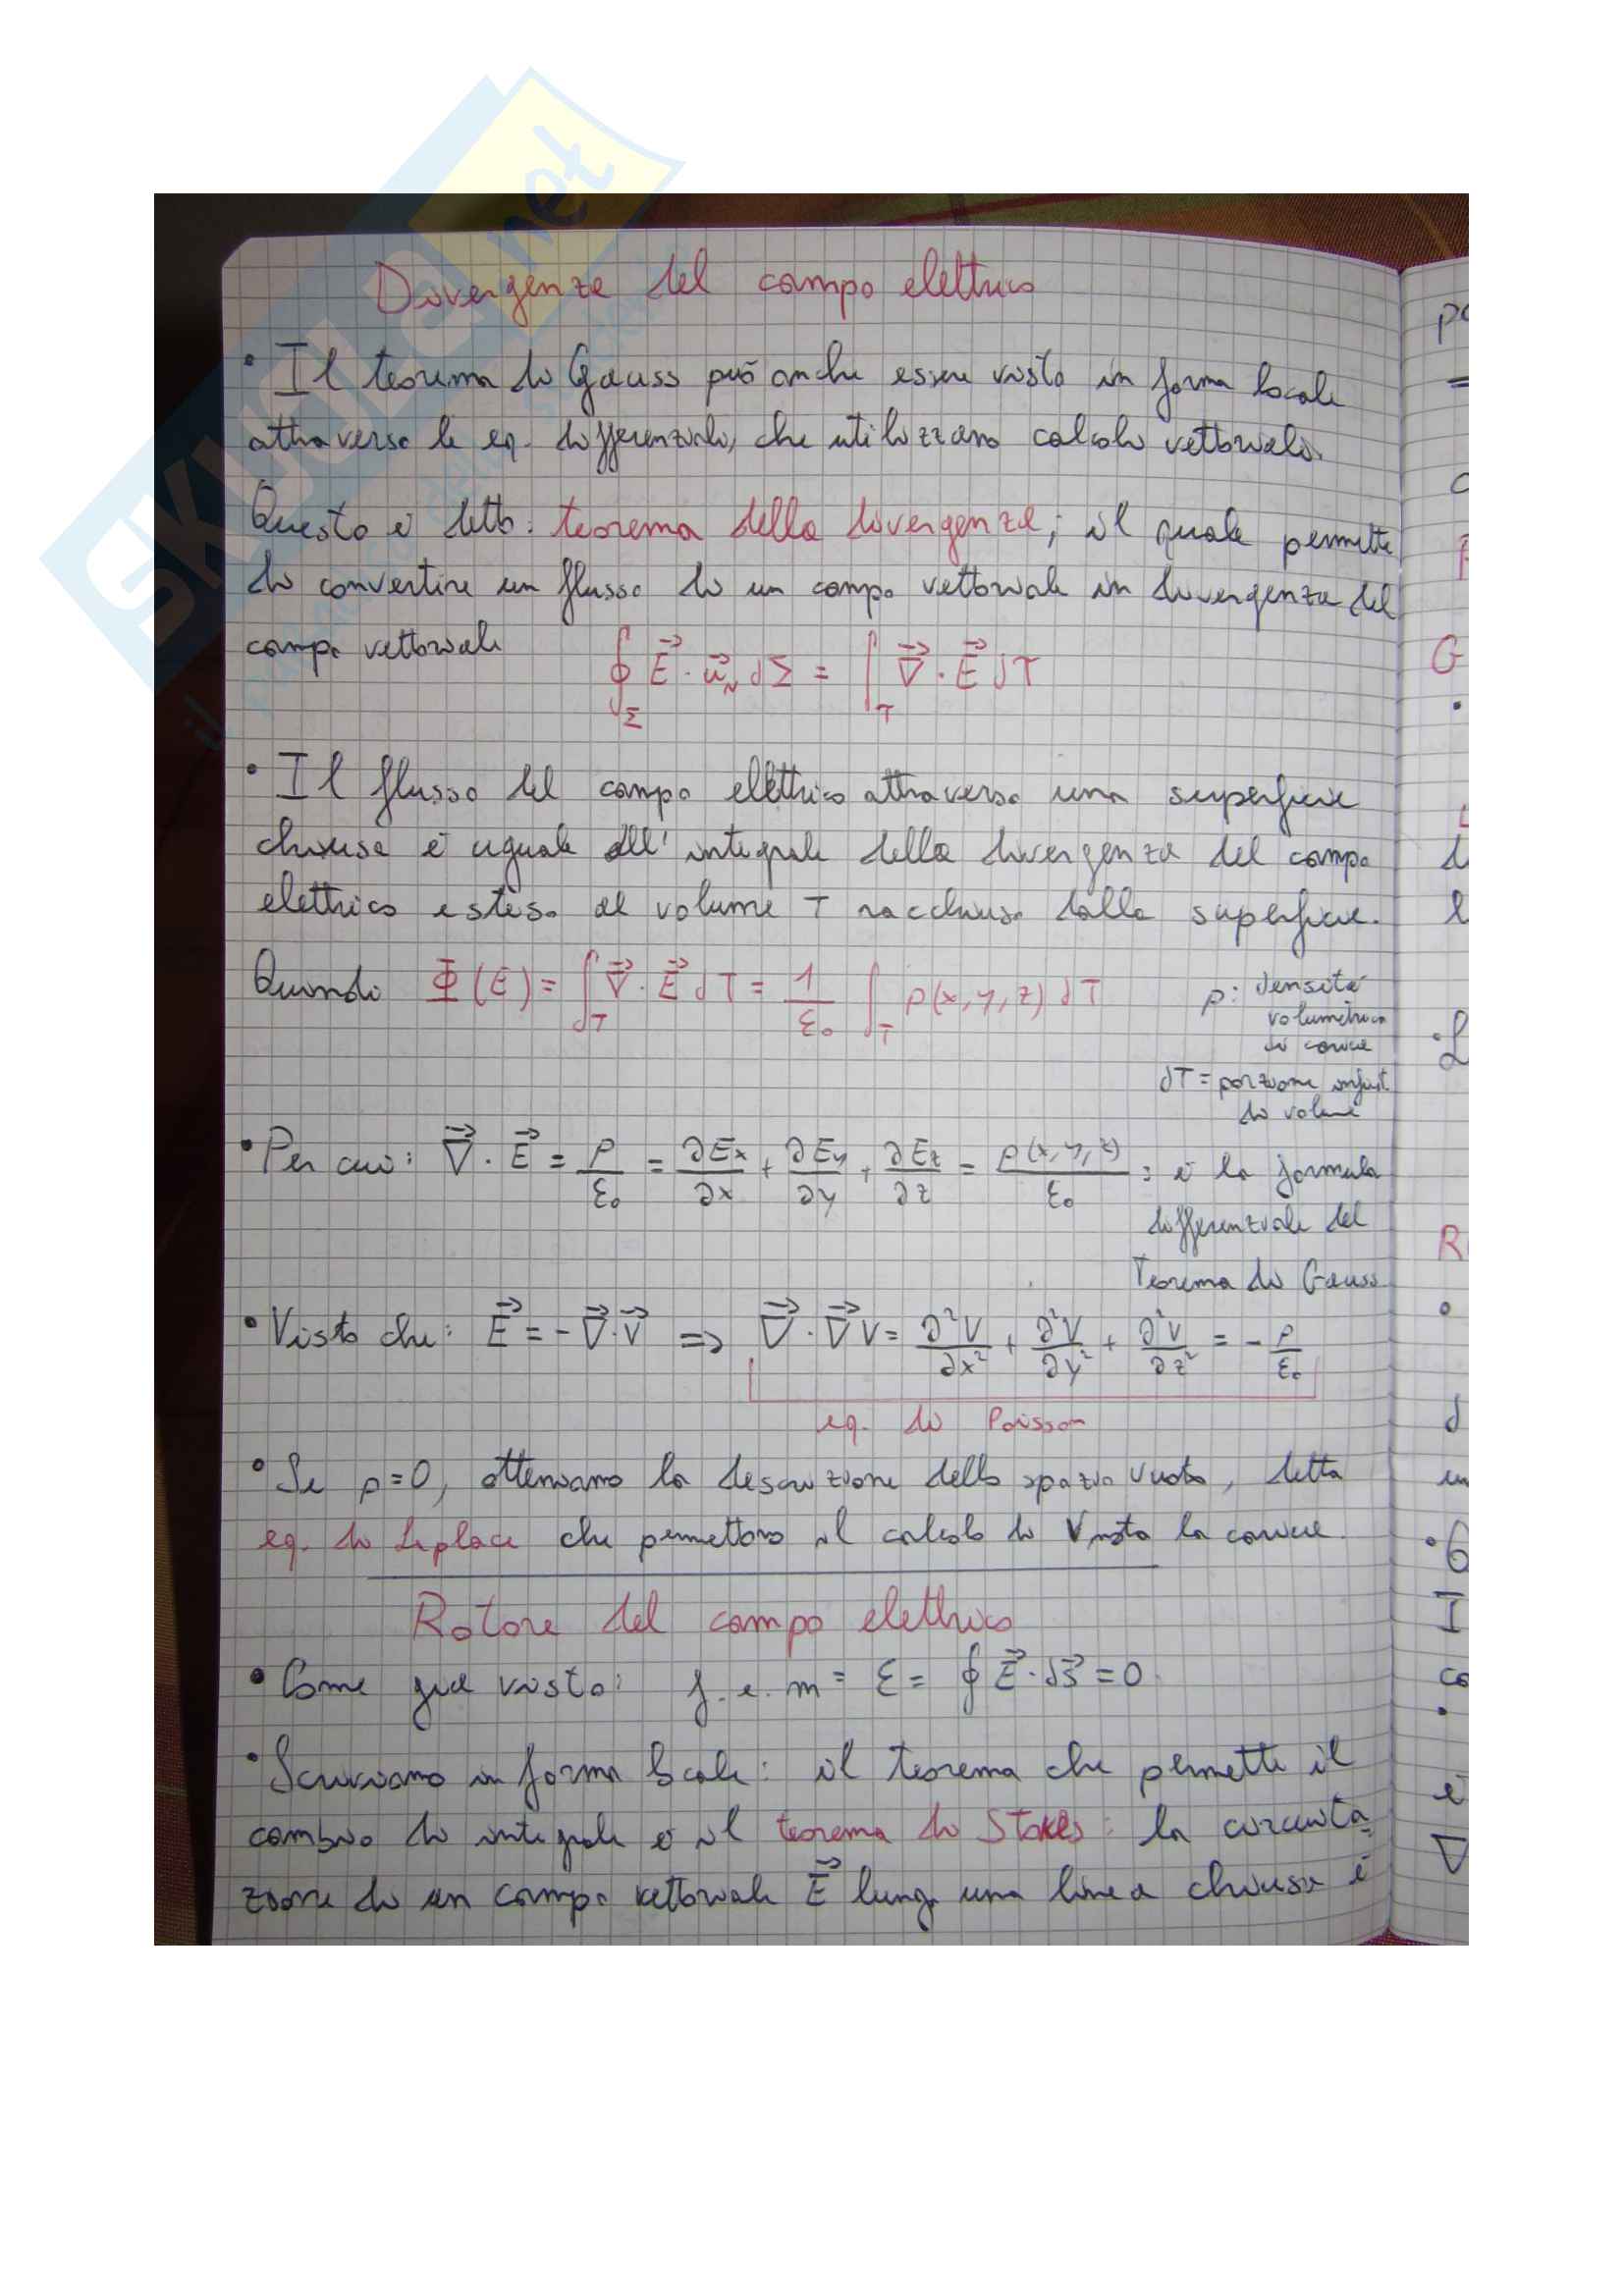 SKUOLA.net
Divergenza del campo elettrico
• Il teorema di Gauss può anche essere visto in forma locale
attraverso le eq. differenziali, che utilizzano calcoli vettoriali.
Questo è detto: teorema della divergenza; il quale permette
di convertire un flusso di un campo vettoriale in divergenza del
campo vettoriale ∮_Σ E⃗ · u⃗_N dΣ = ∫_τ ∇⃗ · E⃗ dτ
• Il flusso del campo elettrico attraverso una superficie
chiusa è uguale all' integrale della divergenza del campo
elettrico esteso al volume τ racchiuso dalla superficie.
Quindi Φ(E) = ∫_τ ∇⃗ · E⃗ dτ = 1/ε₀ ∫_τ ρ(x,y,z) dτ ρ: densità
volumetrica
di carica
dτ = porzione infinit.
di volume
• Per cui: ∇⃗ · E⃗ = ρ/ε₀ = ∂Ex/∂x + ∂Ey/∂y + ∂Ez/∂z = ρ(x,y,z)/ε₀ : è la formula
differenziale del
Teorema di Gauss
• Visto che: E⃗ = -∇⃗·V⃗ => ∇⃗ · ∇⃗ V = ∂²V/∂x² + ∂²V/∂y² + ∂²V/∂z² = - ρ/ε₀
eq. di Poisson
• Se ρ=0, otteniamo la descrizione dello spazio vuoto, detta
eq. di Laplace che permettono il calcolo di V nota la carica.
Rotore del campo elettrico
• Come già visto: f.e.m = ε = ∮ E⃗ · ds⃗ = 0
• Scriviamo in forma locale: il teorema che permette il
cambio di integrale è il teorema di Stokes: la circuita=
zione di un campo vettoriale E⃗ lungo una linea chiusa è